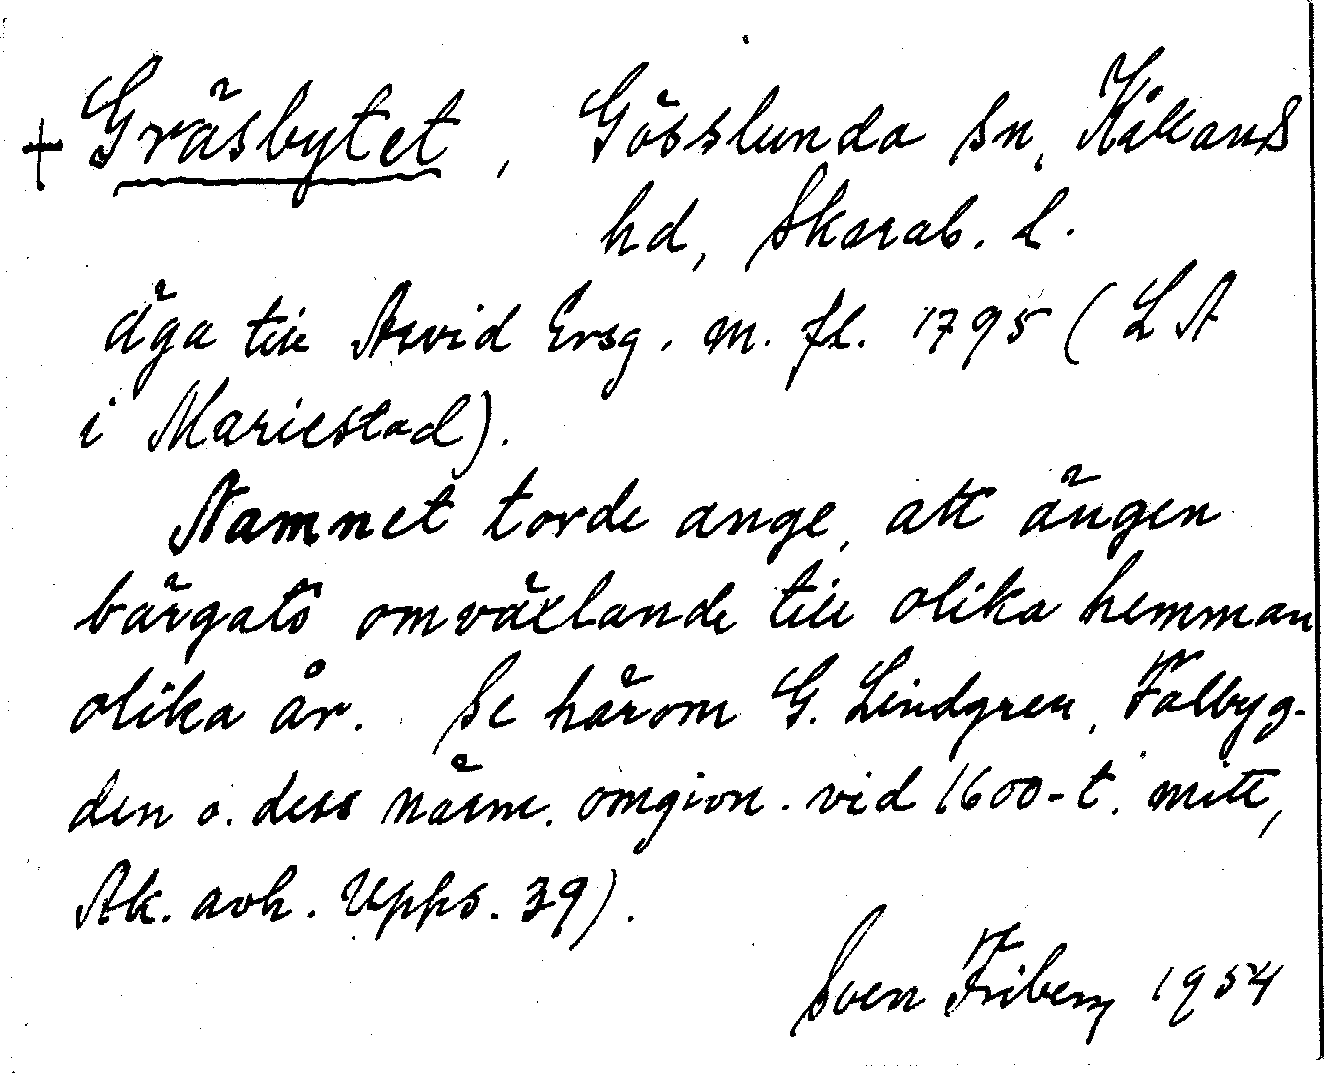 + Gräsbytet, Gösslunda sn, Kållands
hd, Skarab. l.
äga till Arvid Ersg. m. fl. 1795 (LA
i Mariestad).
Namnet torde ange, att ängen
bärgats omväxlande till olika hemman
olika år. Se härom G. Lindgren, Falbyg-
den o. dess närm. omgivn. vid 1600-t. mitt,
Ak. avh. Upps. 39).
Sven Friberg 1954